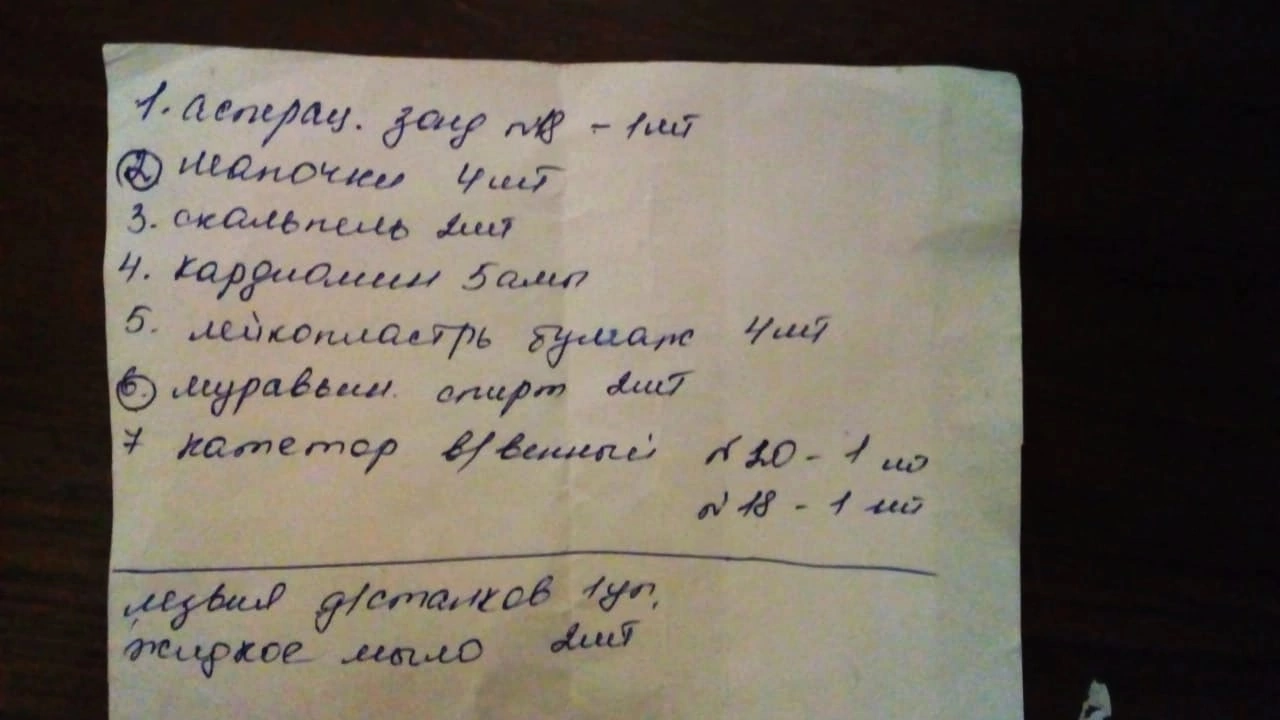 1. аспирац. зонд №18 - 1шт
2. шапочки 4шт
3. скальпель 2шт
4. кардиомин 5амп
5. лейкопластрь бумаж 4шт
6. муравьин. спирт 2шт
7 катетор в/венный №20 - 1 шт
№18 - 1 шт
лезвия д/станков 1уп.
жидкое мыло 2шт